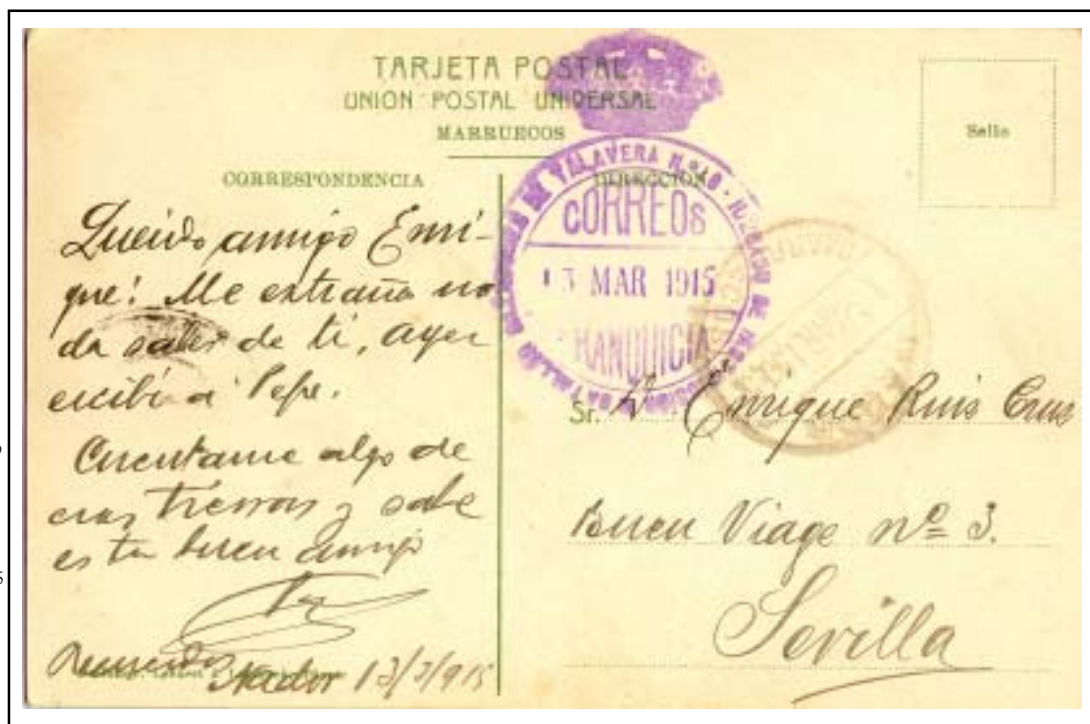 TARJETA POSTAL
UNION POSTAL UNIVERSAL
MARRUECOS
Sello
CORRESPONDENCIA
DIRECCIÓN
Querido amigo Enri-
que: Me extraña no
da saber de ti, ayer
escibi a Pepe.
Cuentame algo de
esas tierras y sabe
es tu buen amigo
Recuerdos Nador 13/3/915
TALAVERA N.º
CORREOS
13 MAR 1915
FRANQUICIA
Sr. Dn Enrique Ruis Cruz
Buen Viage nº 3.
Sevilla